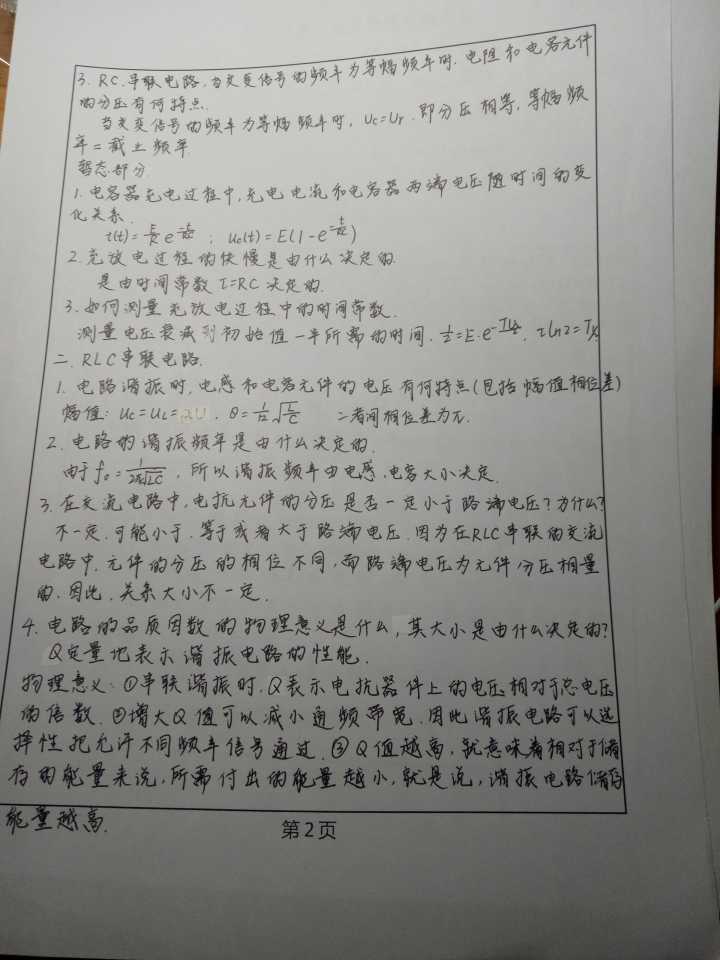 3. RC串联电路,当交变信号的频率为等幅频率时.电阻和电容元件
的分压有何特点.
当交变信号的频率为等幅频率时, Uc=Ur.即分压相等,等幅频
率=截止频率.
暂态部分
1.电容器充电过程中,充电电流和电容器两端电压随时间的变
化关系.
i(t)=E/R e^(-t/RC) ; Uc(t)=E(1-e^(-t/RC))
2.充放电过程的快慢是由什么决定的.
是由时间常数τ=RC决定的.
3.如何测量充放电过程中的时间常数.
测量电压衰减到初始值一半所需的时间.
二、RLC串联电路.
1.电路谐振时,电感和电容元件的电压有何特点(包括幅值相位差)
幅值: Uc=UL=QU . 二者间相位差为π.
2.电路的谐振频率是由什么决定的.
由于f₀=1/(2π√LC) ,所以谐振频率由电感,电容大小决定.
3.在交流电路中,电抗元件的分压是否一定小于路端电压?为什么?
不一定.可能小于.等于或者大于路端电压.因为在RLC串联的交流
电路中.元件的分压的相位不同,而路端电压为元件分压相量
的.因此.关系大小不一定.
4.电路的品质因数的物理意义是什么,其大小是由什么决定的?
Q定量地表示谐振电路的性能.
物理意义:①串联谐振时.Q表示电抗器件上的电压相对于总电压
的倍数.②增大Q值可以减小通频带宽.因此谐振电路可以选
择性把允许不同频率信号通过.③Q值越高,就意味着相对于储
存的能量来说,所需付出的能量越小,就是说,谐振电路储存
能量越高.
第2页